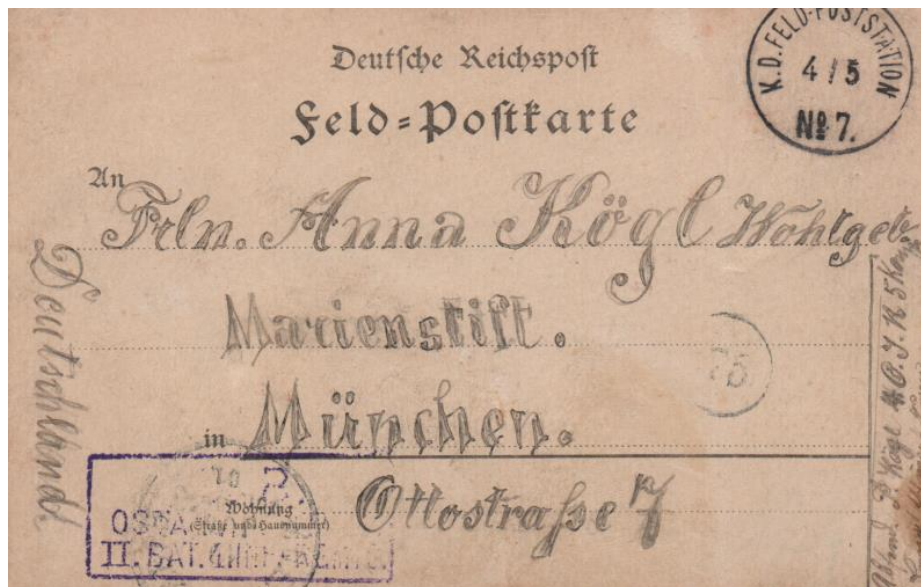 Deutsche Reichspost
Feld-Postkarte
K.D. FELD-POSTSTATION
4/5
No 7.
An
Frln. Anna Kögl Wohlgeb
Marienstift.
75
in München.
Wohnung
(Straße und Hausnummer)
Ottostraße 7
Deutschland.
II. BAT.